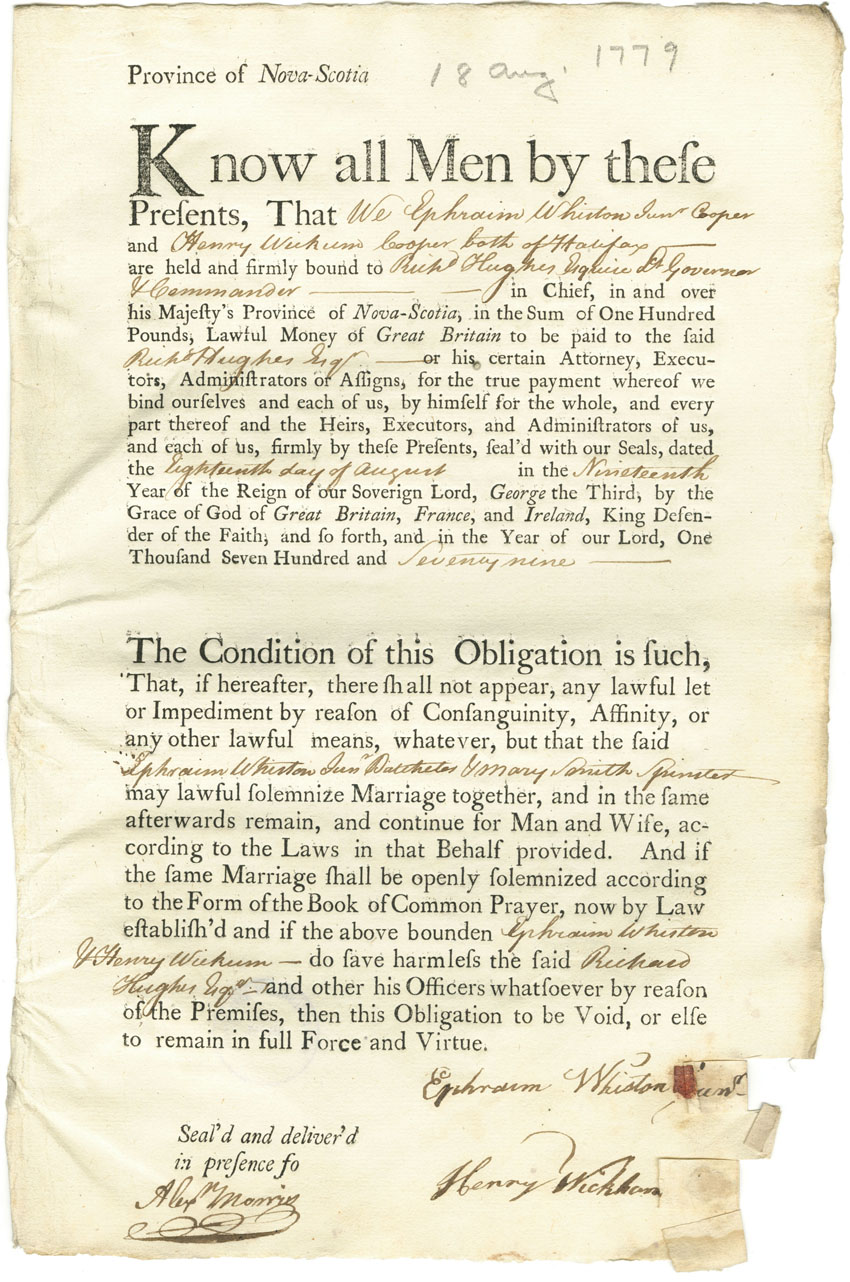 Province of Nova-Scotia
18 Aug. 1779
Know all Men by theſe
Preſents, That We Ephraim Whiston Junr Cooper
and Henry Wickum Cooper both of Halifax
are held and firmly bound to Richd Hughes Esquire Lt Governor
& Commander in Chief, in and over
his Majeſty's Province of Nova-Scotia, in the Sum of One Hundred
Pounds, Lawful Money of Great Britain to be paid to the ſaid
Richd Hughes Esqr or his certain Attorney, Execu-
tors, Adminiſtrators or Aſſigns, for the true payment whereof we
bind ourſelves and each of us, by himſelf for the whole, and every
part thereof and the Heirs, Executors, and Adminiſtrators of us,
and each of us, firmly by theſe Preſents, ſeal'd with our Seals, dated
the Eighteenth day of August in the Nineteenth
Year of the Reign of our Soverign Lord, George the Third, by the
Grace of God of Great Britain, France, and Ireland, King Defen-
der of the Faith, and ſo forth, and in the Year of our Lord, One
Thouſand Seven Hundred and Seventy nine
The Condition of this Obligation is ſuch,
That, if hereafter, there ſhall not appear, any lawful let
or Impediment by reaſon of Conſanguinity, Affinity, or
any other lawful means, whatever, but that the ſaid
Ephraim Whiston Junr Batchelor & Mary Smith Spinster
may lawful ſolemnize Marriage together, and in the ſame
afterwards remain, and continue for Man and Wife, ac-
cording to the Laws in that Behalf provided. And if
the ſame Marriage ſhall be openly ſolemnized according
to the Form of the Book of Common Prayer, now by Law
eſtabliſh'd and if the above bounden Ephraim Whiston
& Henry Wickum do ſave harmleſs the ſaid Richard
Hughes Esqr and other his Officers whatſoever by reaſon
of the Premiſes, then this Obligation to be Void, or elſe
to remain in full Force and Virtue.
Ephraim Whiston Junr
Seal'd and deliver'd
in preſence fo
Alexr Morris
Henry Wickham